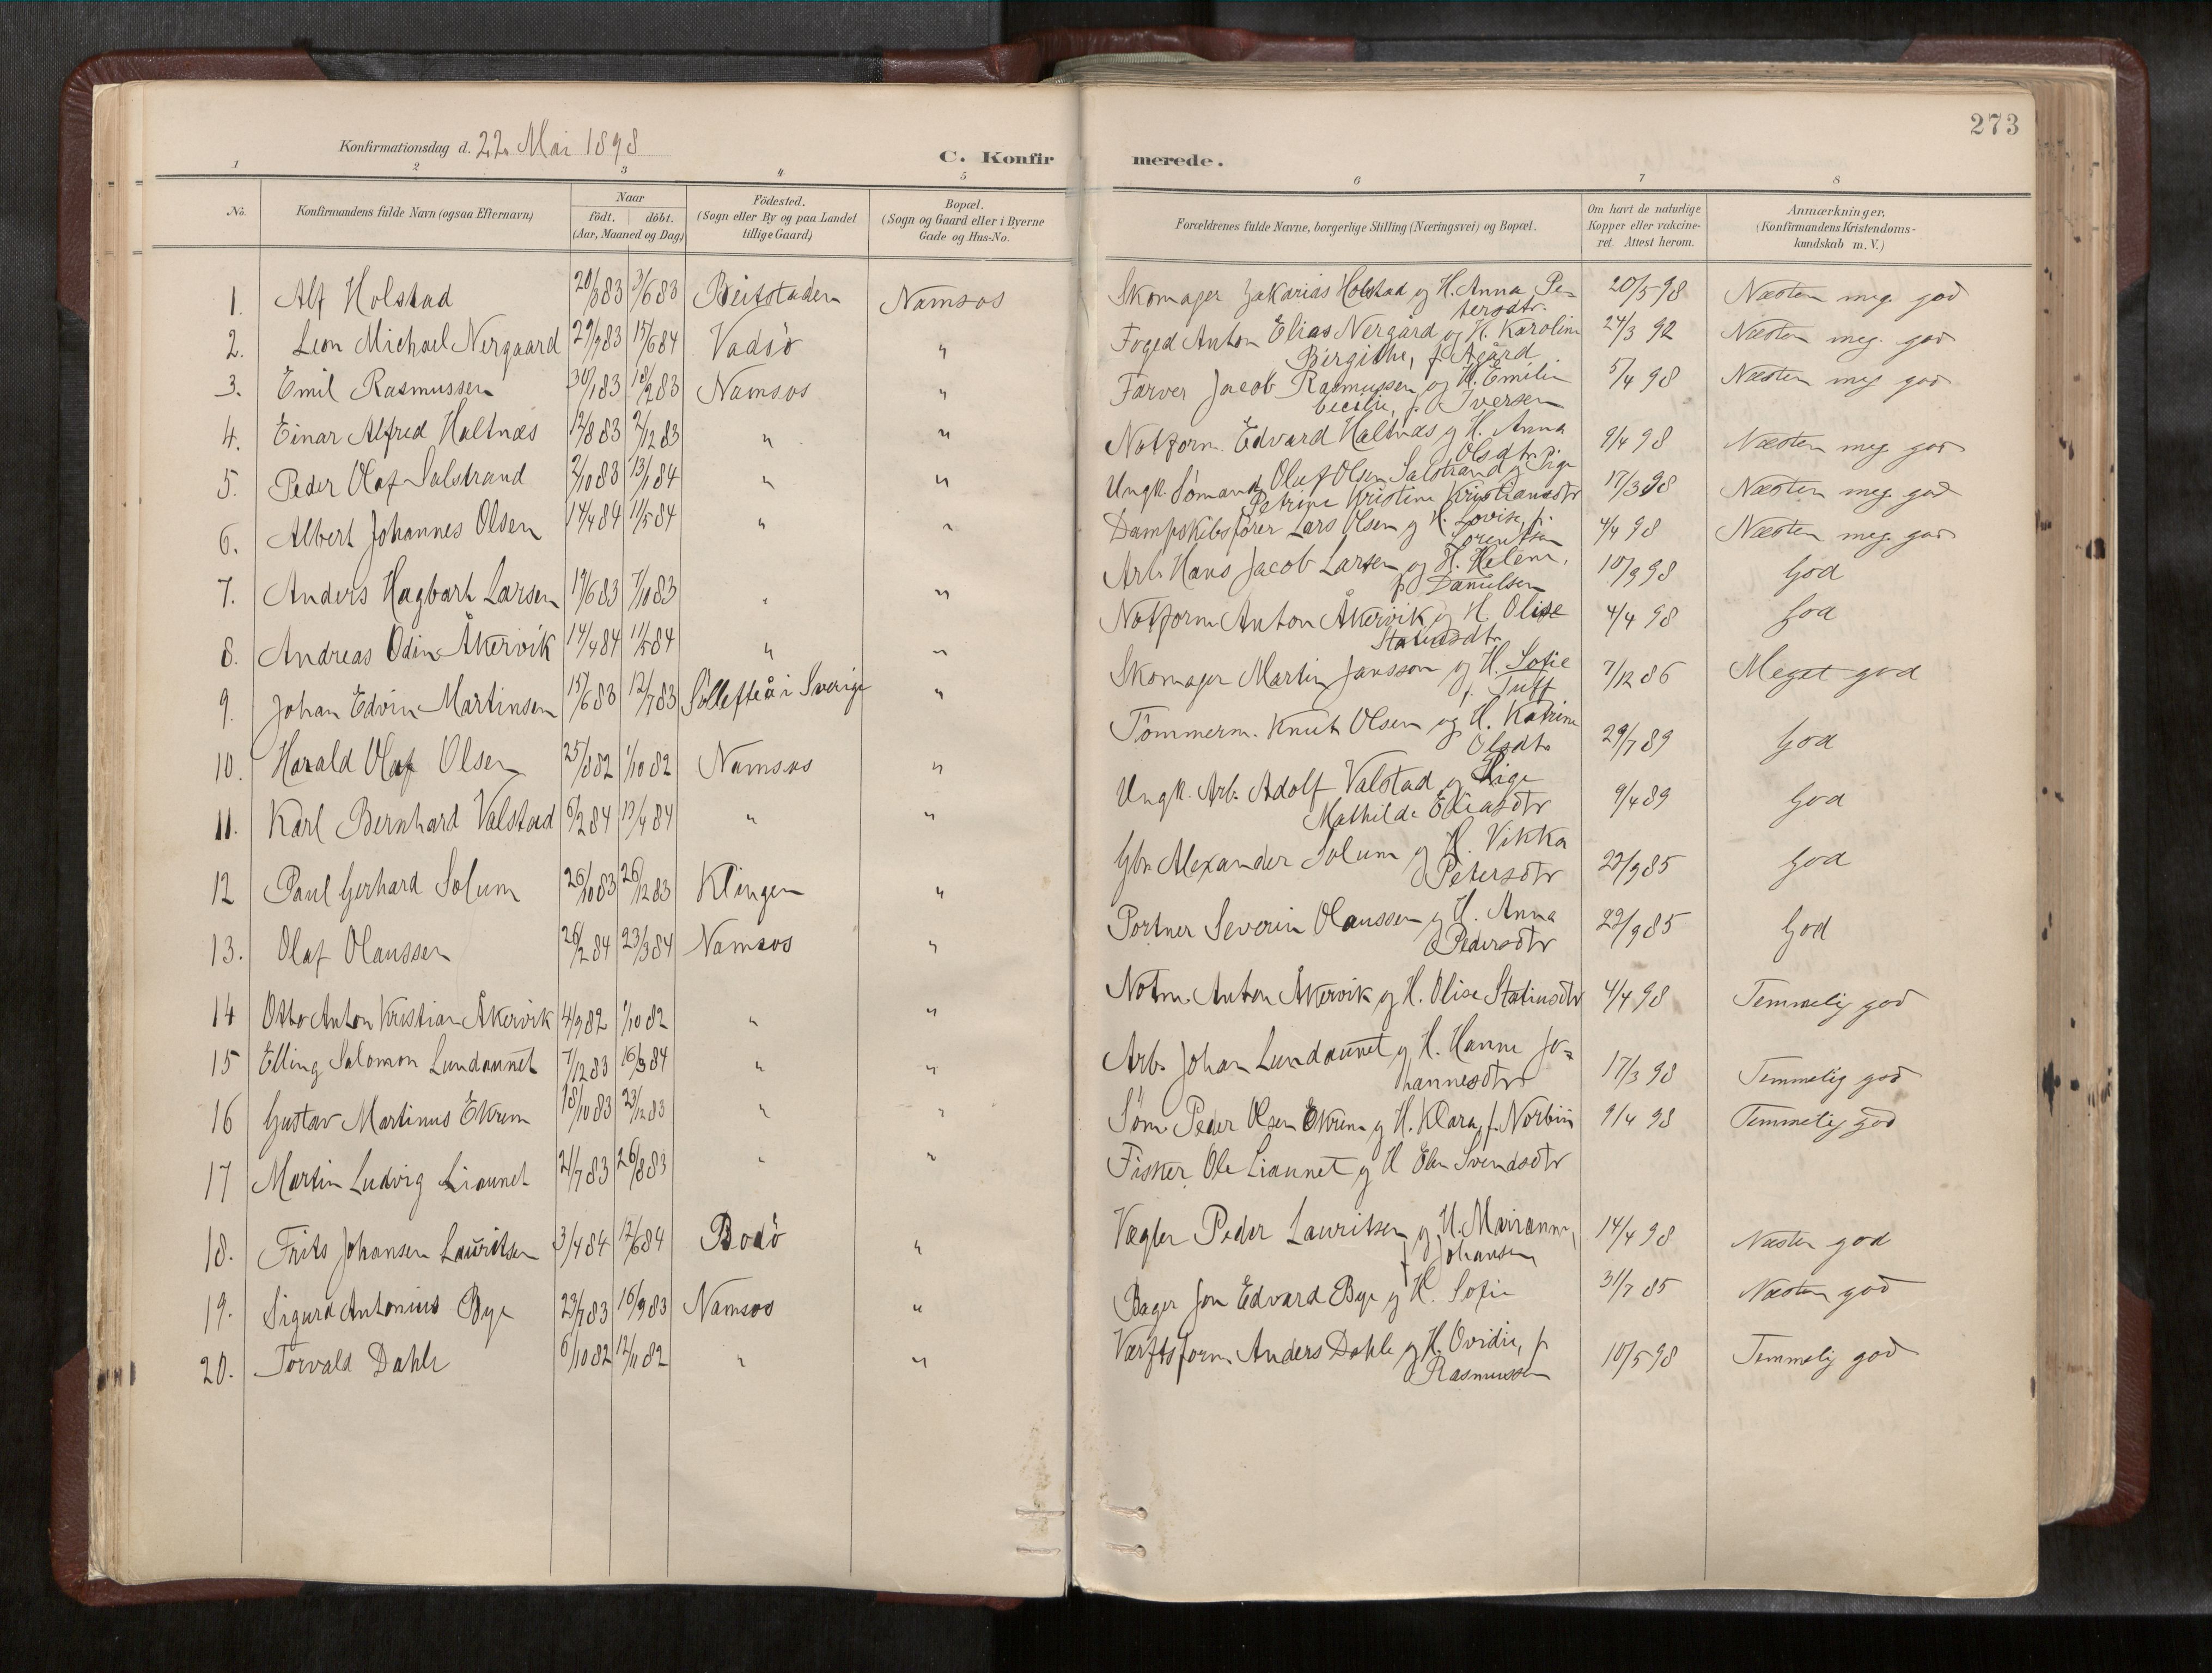 273
Konfirmationsdag d. 22. Mai 1898
C. Konfirmerede.
1 2 3 4 5 6 7 8
No.
Konfirmandens fulde Navn (ogsaa Efternavn)
Naar
födt. döbt.
(Aar, Maaned og Dag)
Födested.
(Sogn eller By og paa Landet
tillige Gaard)
Bopæl.
(Sogn og Gaard eller i Byerne
Gade og Hus-No.
Forældrenes fulde Navne, borgerlige Stilling (Næringsvei) og Bopæl.
Om havt de naturlige
Kopper eller vakcine-
ret. Attest herom.
Anmærkninger.
(Konfirmandens Kristendoms-
kundskab m. V.)
1. Alf Holstad 20/3 83 3/6 83 Beitstaden Namsos Skomager Zakarias Holstad og H. Anna Pe-
tersdtr. 20/5 98 Næsten meg. god
2. Leon Michael Nergaard 29/9 83 15/6 84 Vadsö " Foged Anton Elias Nergård og H. Karoline
Bergithe, f. Agård 24/3 92 Næsten meg. god
3. Emil Rasmussen 30/1 83 18/2 83 Namsos " Farver Jacob Rasmussen og H. Emilie
Cecilie, f. Iversen 5/4 98 Næsten meg god
4. Einar Alfred Haltnæs 12/8 83 2/12 83 " " Notform. Edvard Haltnæs og H. Anna
Olsdtr. 9/4 98 Næsten meg god
5. Peder Olaf Salstrand 2/10 83 13/1 84 " " Ungk. Sömand Oluf Olsen Salstrand og Pige
Petrine Kristine Kristiansdtr 17/3 98 Næsten meg. god
6. Albert Johannes Olsen 14/4 84 11/5 84 " " Dampskibsförer Lars Olsen og H. Lovise, f.
Lorentsen 4/4 98 Næsten meg. god
7. Anders Hagbart Larsen 19/6 83 7/10 83 " " Arb. Hans Jacob Larsen og H. Helene,
f. Danielsen 10/9 98 God
8. Andreas Odin Åkervik 14/4 84 11/5 84 " " Notform Anton Åkervik og H. Olise
Statiusdtr 4/4 98 God
9. Johan Edvin Martinsen 15/6 83 12/7 83 Sollefteå i Sverige " Skomager Martin Jansson og H. Sofie
f. Tuff 7/12 86 Meget god
10. Harald Olaf Olsen 25/8 82 1/10 82 Namsos " Tömmerm. Knut Olsen og H. Katrine
Olsdtr 29/7 89 God
11. Karl Bernhard Valstad 6/2 84 13/4 84 " " Ungk. Arb. Adolf Valstad og Pige
Mathilde Eliasdtr 9/4 89 God
12 Paul Gerhard Solum 26/10 83 26/12 83 Klingen " Gbr. Alexander Solum og H. Vikka
Petersdtr 22/9 85 God
13. Olaf Olaussen 26/2 84 23/3 84 Namsos " Portner Severin Olaussen og H. Anna
Pedersdtr 22/9 85 God
14 Otto Anton Kristian Åkervik 4/9 82 1/10 82 " " Notm. Anton Åkervik og H. Olise Statiusdtr 4/4 98 Temmelig god
15 Elling Salomon Lundaunet 7/12 83 16/3 84 " " Arb. Johan Lundaunet og H. Hanne Jo-
hannesdtr 17/3 98 Temmelig god
16 Gustav Martinus Ekrem 18/10 83 23/12 83 " " Söm. Peder Olsen Ekrem og H. Klara, f. Norbin 9/4 98 Temmelig god
17 Martin Ludvig Liaunet 21/7 83 26/8 83 " " Fisker Ole Liaunet og H Elen Svendsdtr
18. Frits Johansen Lauritsen 3/4 84 12/6 84 Bodö " Vægter Peder Lauritsen og H. Marianne,
f Johansen 14/4 98 Næsten god
19. Sigurd Antonius Bye 23/7 83 16/9 83 Namsos " Bager Jon Edvard Bye og H. Sofie 31/7 85 Næsten god
20. Torvald Dahle 6/10 82 12/11 82 " " Værftsform. Anders Dahle og H. Ovidie, f
Rasmussen 10/5 98 Temmelig god